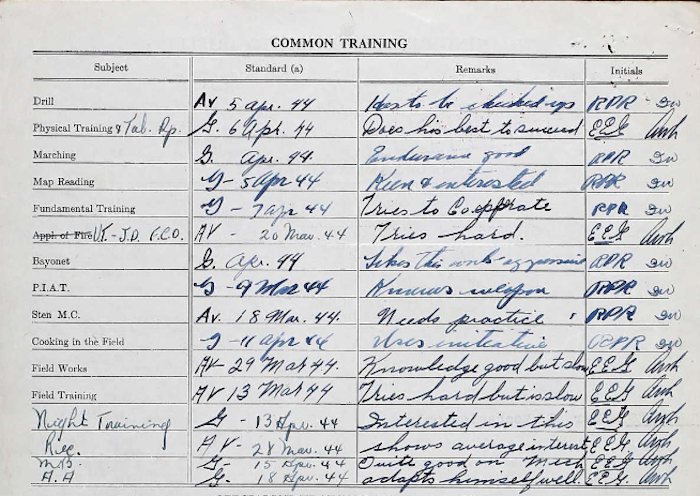 COMMON TRAINING
Subject Standard (a) Remarks Initials
Drill Av 5 Apr. 44 Has to be checked up RPR
Physical Training & Tab. Rp. G. 6 Apr. 44 Does his best to succeed E.E.G
Marching G. Apr. 44 Endurance good RPR
Map Reading G - 5 Apr 44 Keen & interested RPR
Fundamental Training G - 7 Apr 44 Tries to Cooperate RPR
Appl. of Fire I.T. - J.D. F.C.O. AV - 20 Mar. 44 Tries hard. E.E.G
Bayonet G. Apr. 44 Likes this work - aggressive RPR
P.I.A.T. G - 9 Mar 44 Knows weapon RPR
Sten M.C. Av. 18 Mar. 44. Needs practice RPR
Cooking in the Field G - 11 Apr 44 Uses initiative RPR
Field Works AV - 29 Mar 44. Knowledge good but slow E.E.G
Field Training AV 13 Mar 44 Tries hard but is slow E.E.G
Night Training G - 13 Apr. 44 Interested in this E.E.G
Rec. AV - 28 Mar. 44 shows average interest E.E.G.
M.B. G - 15 Apr. 44 Quite good on Mech E.E.G
A.A G. 18 Apr. 44 adapts himself well. E.E.G